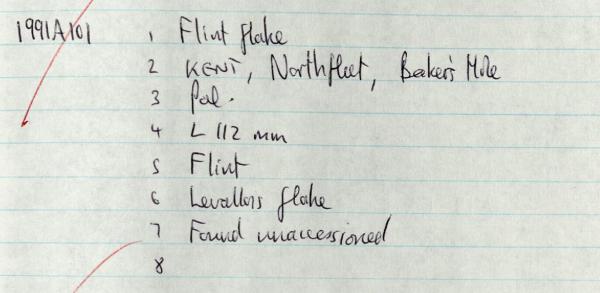 1991A101 1 Flint flake
2 KENT, Northfleet, Baker's Hole
3 Pal.
4 L 112 mm
5 Flint
6 Levallois flake
7 Found unaccessioned
8